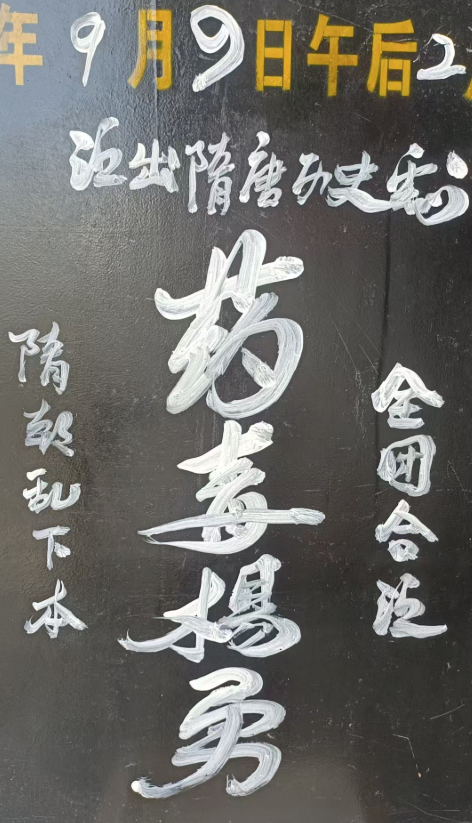 年9月9日午后2
泛出隋唐历史剧
全团合泛
药毒杨勇
隋朝乱下本